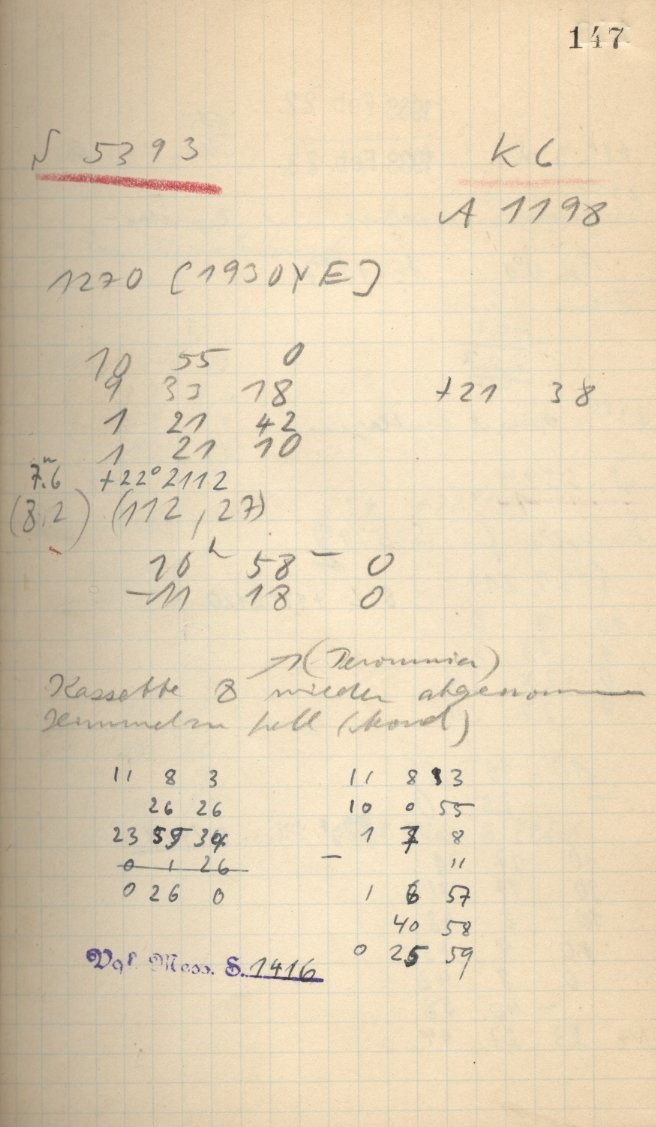 147
N 5393 K 6
A 1198
1270 (1930 YE)
10 55 0
9 33 18 +21 38
1 21 42
1 21 10
7.ᵐ6 +22° 2112
(8,2) (112, 27)
10ʰ 58 — 0
—11 18 0
(Deromnia)
Kassette 8 wieder abgenommen
Himmel zu hell (Mond)
11 8 3 11 8 13
26 26 10 0 55
23 59 34 1 7 8
0 1 26 — 11
0 26 0 1 6 57
40 58
Vgl. Mess. S. 1416 0 25 59